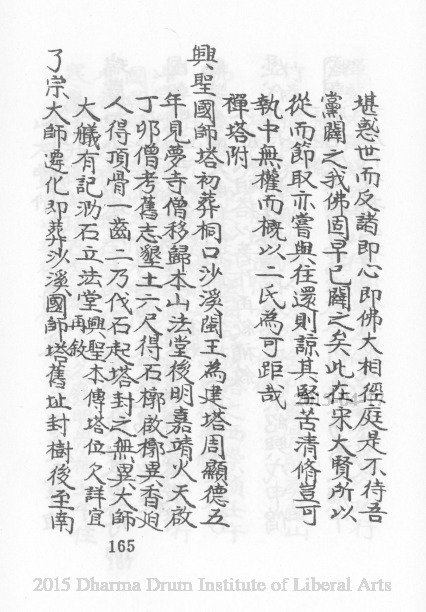 堪惑世而反諸即心即佛大相徑庭是不待吾
黨闢之我佛固早已闢之矣此在宋大賢所以
從而節取亦嘗與往還則諒其堅苦清脩豈可
執中無權而槪以二氏為可距哉
禪塔附
興聖國師塔初葬桐口沙溪閩王為建塔周顯德五
年見夢寺僧移歸本山法堂後明嘉靖火天啟
丁卯僧考舊志墾土六尺得石槨啟槨異香迫
人得頂骨一齒二乃伐石起塔封之無異大師
大艤有記泐石立法堂興聖本傳塔位欠詳宜
再敘
了宗大師遷化即葬沙溪國師塔舊址封樹後至南
165
2015 Dharma Drum Institute of Liberal Arts